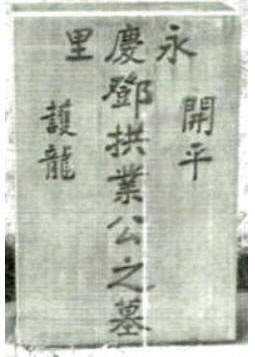 永慶里
開平
鄧拱業公之墓
護龍